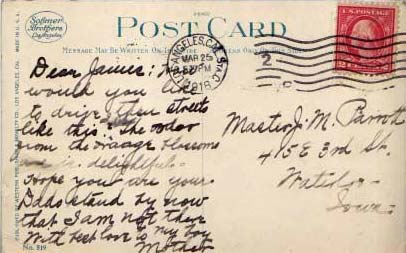 Sofmer
Brothers
Los Angeles
MADE IN U.S.A.
POST CARD
MESSAGE MAY BE WRITTEN ON THIS SIDE ONLY ON THIS SIDE
LOS ANGELES, CAL. STA. C
MAR 25
PM
1918
2
U.S. POSTAGE
2 2
Dear James: How
would you like
to drive thru streets
like this? The odor
from the orange blossoms
here is delightful.
Hope you are your
Dads stand by now
that I am not there
With best love to my boy
Mother
Master J. M. Parrott
415 E 3rd St.
Waterloo
Iowa
No. 519